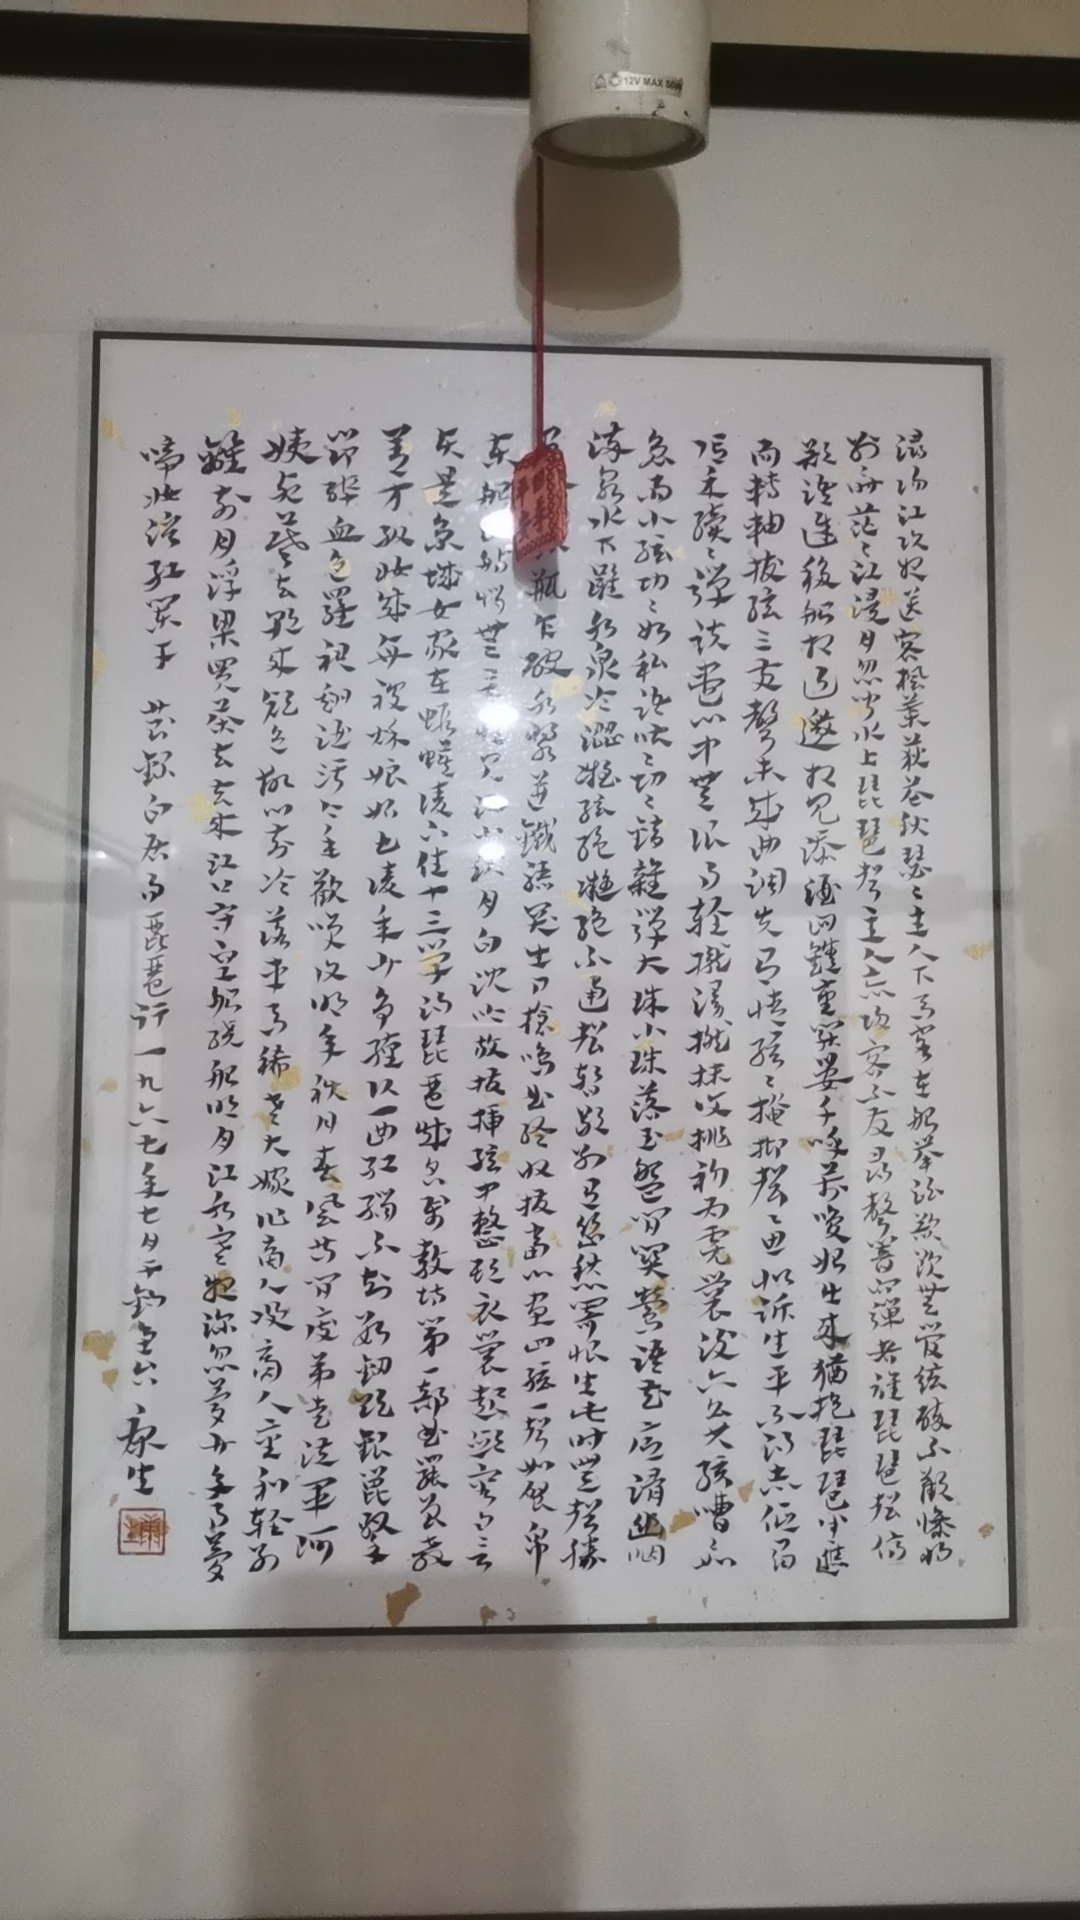 潯陽江頭夜送客楓葉荻花秋瑟々主人下馬客在船舉酒欲飲無管絃醉不歡慘將
别時茫々江浸月忽聞水上琵琶聲主人忘歸客不發尋聲暗問彈者誰琵琶聲停
欲語遲移船相近邀相見添酒回鐙重開宴千呼萬喚始出來猶抱琵琶半遮
面轉軸撥絃三两聲未成曲調先有情絃々掩抑聲々思似訴生平不得志低眉
信手續々彈説盡心中無限事輕攏漫撚抹復挑初為霓裳後六幺大絃嘈々如
急雨小絃切々如私語嘈々切々錯雜彈大珠小珠落玉盤間關鶯語花底滑幽咽
流泉水下難水泉冷澀凝絃絶凝絶不通聲暫歇别有幽愁闇恨生此時無聲勝
瓶乍破水漿迸鐵騎突出刀槍鳴曲終收撥當心畫四絃一聲如裂帛
東船西舫悄無言唯見江心秋月白沈吟放撥插絃中整頓衣裳起斂容自言
本是京城女家在蝦蟆陵下住十三學得琵琶成名屬教坊第一部曲罷曾教
善才服妝成每被秋娘妒五陵年少爭纏頭一曲紅綃不知數鈿頭銀篦擊
節碎血色羅裙翻酒污今年歡笑復明年秋月春風等閒度弟走從軍阿
姨死暮去朝來顔色故門前冷落車馬稀老大嫁作商人婦商人重利輕别
離前月浮梁買茶去去來江口守空船繞船明月江水寒夜深忽夢少年事夢
啼妝淚紅闌干 節録白居易琵琶行一九六七年七月于釣魚台 康生
康生
12V MAX 50W